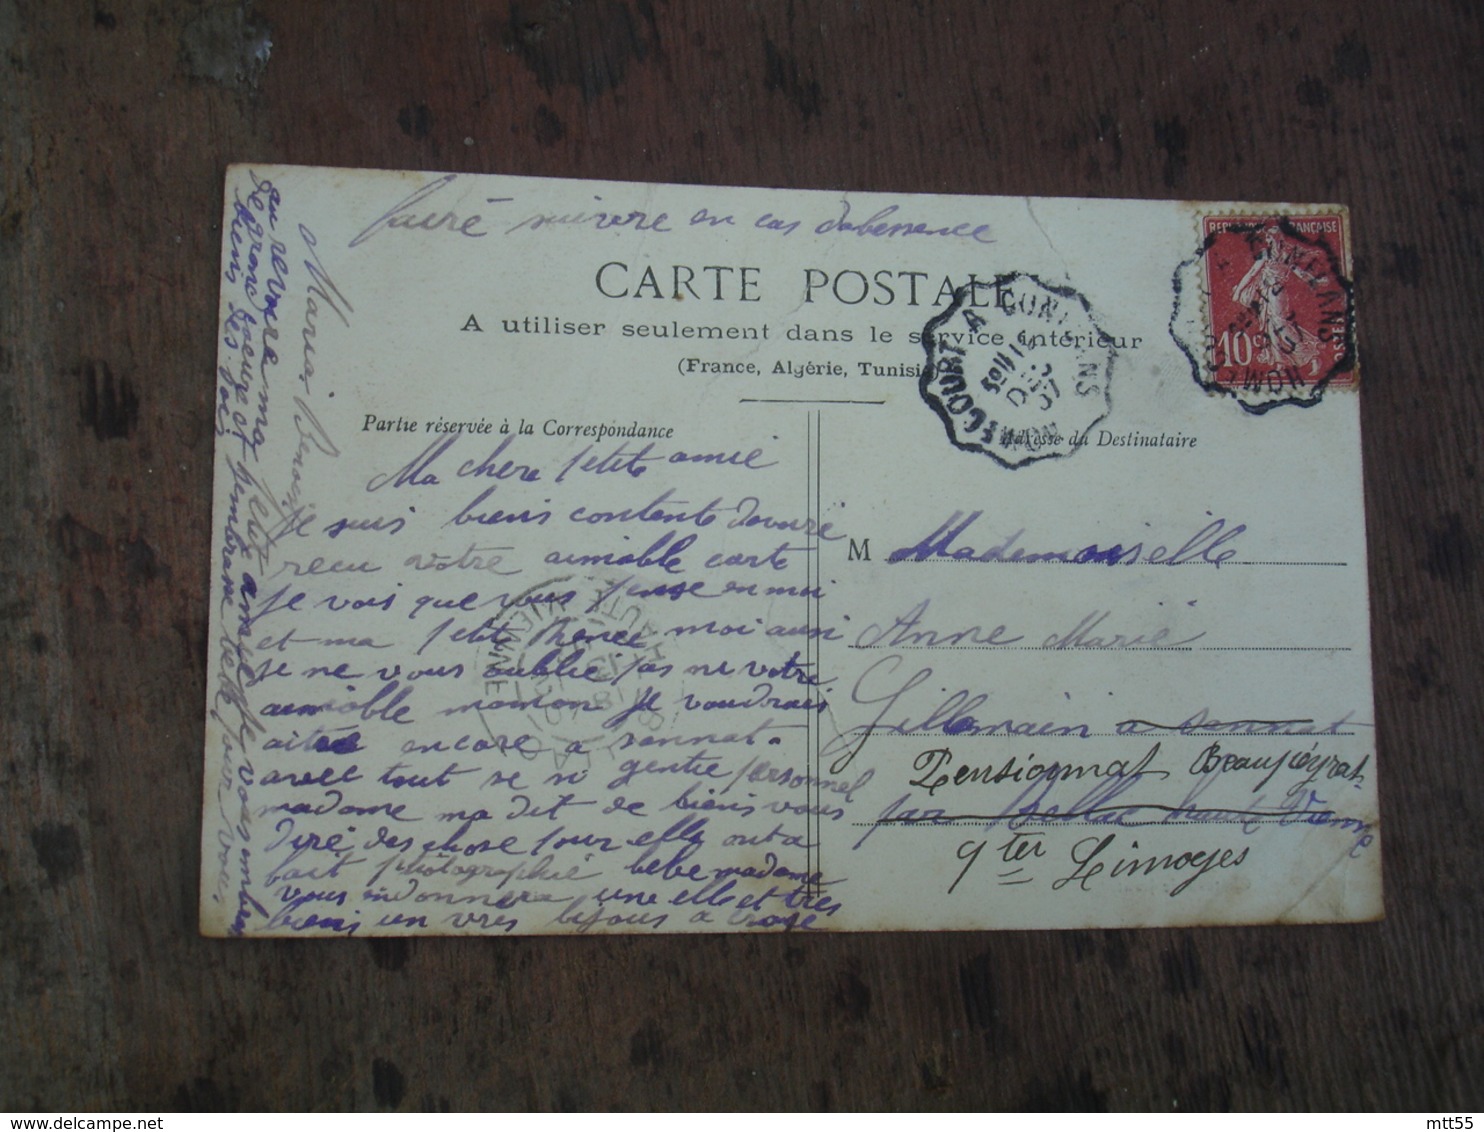 faire suivre en cas dabessence
CARTE POSTALE
A utiliser seulement dans le service intérieur
(France, Algérie, Tunisie)
REPUBLIQUE FRANÇAISE
10c
POSTES
HOMÉCOURT A CONFLANS
HOMÉCOURT A CONFLANS
Partie réservée à la Correspondance
Adresse du Destinataire
Ma chere petite amie
Je suis biens contente davoire
recu votre aimiable carte
Je vois que vous pense en moi
et ma petit Renee moi aussi
je ne vous oublie pas ne votre
aimiable maman Je voudrais
aitre encore a sannat
avec tout se si gentie personnel
madame ma dit de biens vous
dire des chose pour elle out a
fait photographié bebe madame
vous en donnera une elle et tres
biens un vres bijous a
au revoire ma petit amie je vous
de gros
biens des fois
Maria
M Mademoiselle
Anne Marie
Gillemain a sannat
Pensionnat Beaupeyrat
par Bella haute Vienne
9ter Limoges
HAUTE VIENNE
mtt55